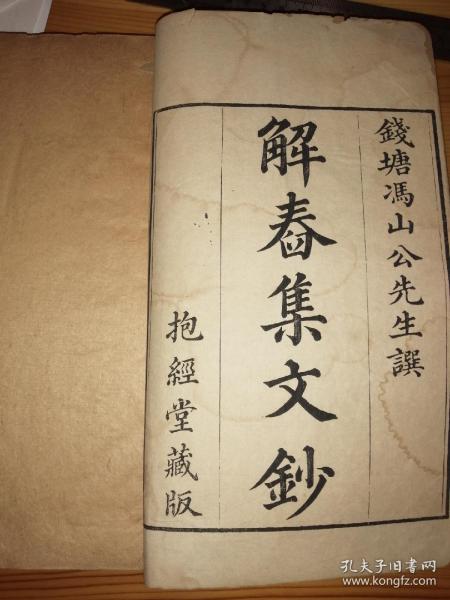 錢塘馮山公先生譔
解舂集文鈔
抱經堂藏版
孔夫子旧书网
www.kongfz.com